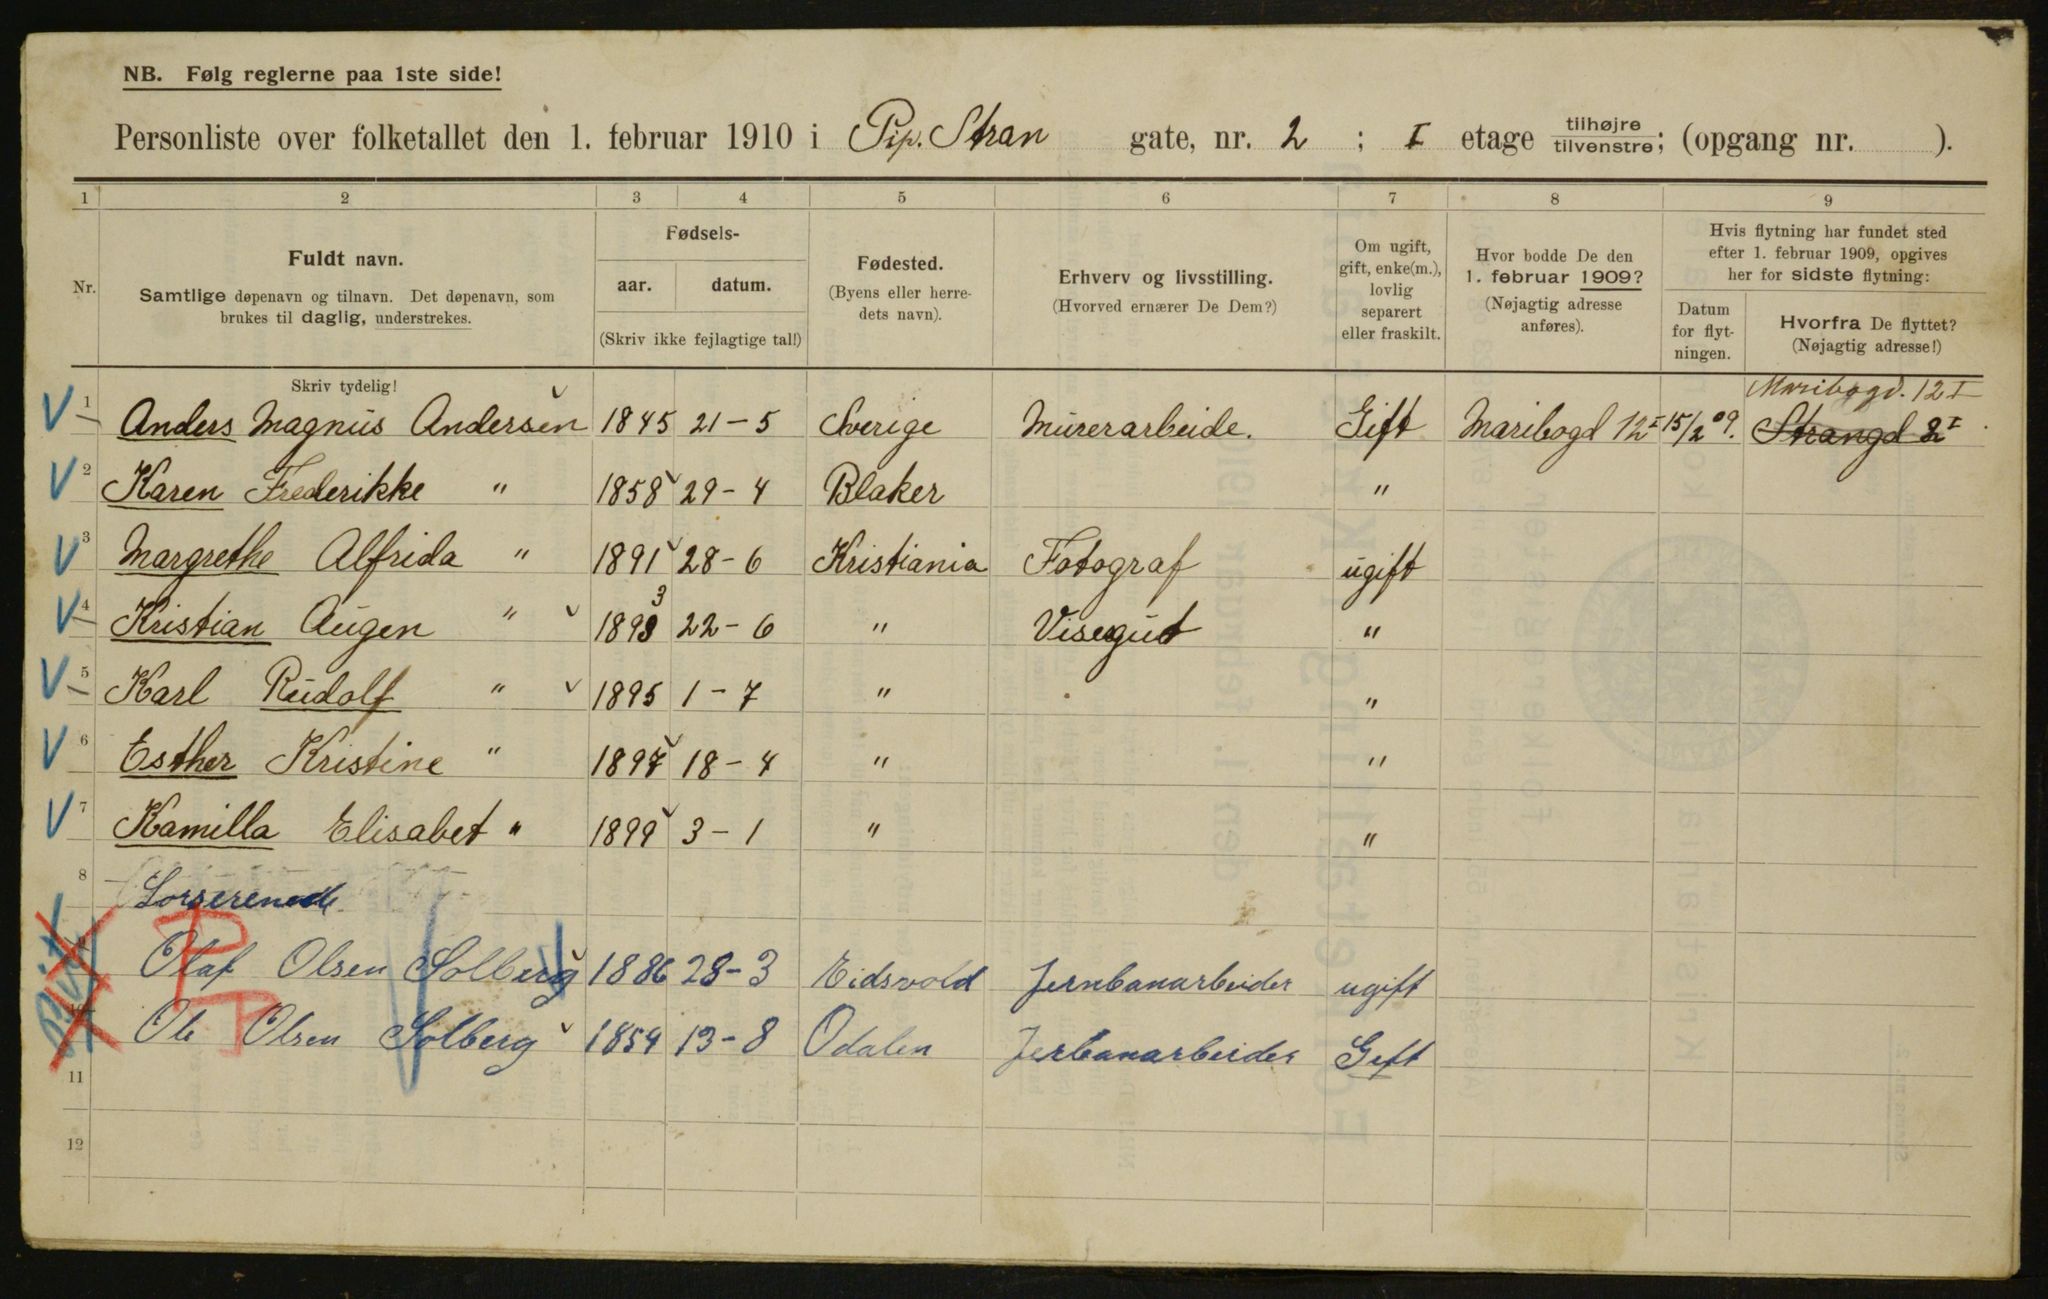 NB. Følg reglerne paa 1ste side!
Personliste over folketallet den 1. februar 1910 i Pip. Stran gate, nr. 2 ; I etage tilhøjre tilvenstre; (opgang nr. ).
1 2 3 4 5 6 7 8 9
Nr.
Fuldt navn.
Samtlige døpenavn og tilnavn. Det døpenavn, som
brukes til daglig, understrekes.
Skriv tydelig!
Fødsels-
aar. datum.
(Skriv ikke fejlagtige tal!)
Fødested.
(Byens eller herre-
dets navn).
Erhverv og livsstilling.
(Hvorved ernærer De Dem?)
Om ugift,
gift, enke(m.),
lovlig
separert
eller fraskilt.
Hvor bodde De den
1. februar 1909?
(Nøjagtig adresse
anføres).
Hvis flytning har fundet sted
efter 1. februar 1909, opgives
her for sidste flytning:
Datum
for flyt-
ningen.
Hvorfra De flyttet?
(Nøjagtig adresse!)
Maribogd. 12 I
1 Anders Magnus Andersen 1845 21-5 Sverige Murerarbeide. Gift Maribogd 12 I 15/2 09. Strangd 2 I
2 Karen Frederikke " 1858 29-4 Blaker "
3 Margrethe Alfrida " 1891 28-6 Kristiania Fotograf ugift
3
4 Kristian Augen " 1898 22-6 " Visergut "
5 Karl Rudolf " 1895 1-7 " "
6 Esther Kristine " 1897 18-4 " "
7 Kamilla Elisabet " 1899 3-1 " "
8 Losserende
9 Olaf Olsen Solberg 1886 28-3 Eidsvold Jernbanarbeider ugift
10 Ole Olsen Solberg 1854 13-8 Odalen Jerbanarbeider Gift
11
12